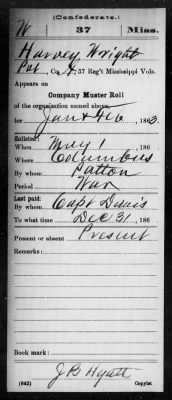 (Confederate.)
W 37 Miss.
Harvey Wright
Pvt, Co. 37 Reg't Mississippi Vols.
Appears on
Company Muster Roll
of the organization named above,
for Jan & Feb, 1863.
Enlisted:
When May 1, 186
Where Columbus
By whom Patton
Period War
Last paid:
By whom Capt Davis
To what time Dec 31, 186
Present or absent Present
Remarks:
Book mark:
J B Hyatt
(642) Copyist.